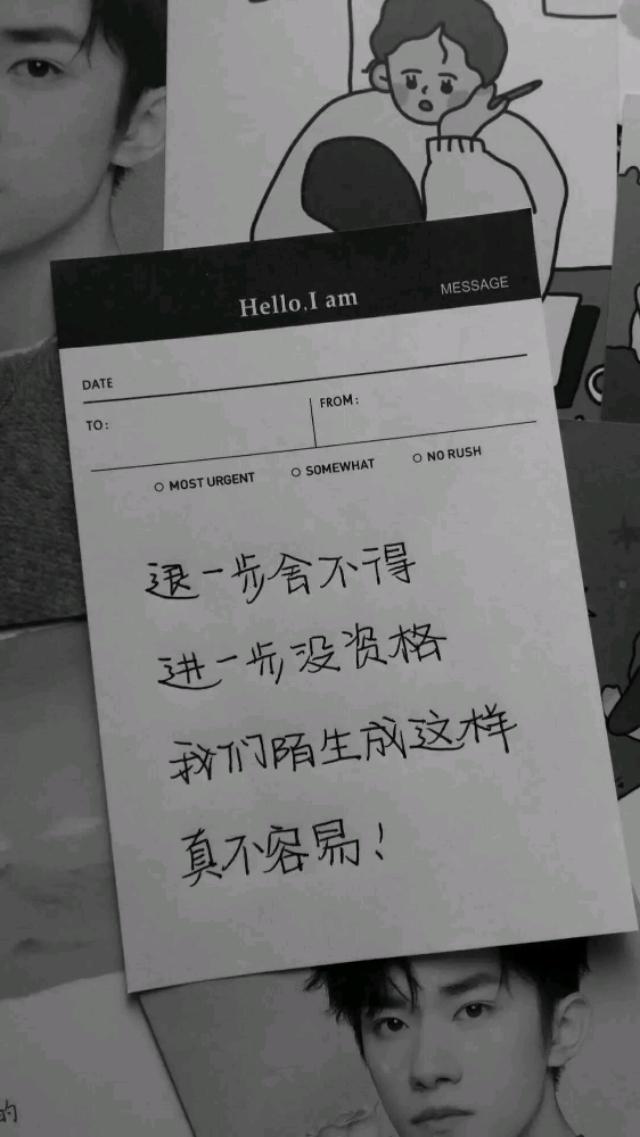 Hello,I am
MESSAGE
DATE
TO:
FROM:
MOST URGENT
SOMEWHAT
NO RUSH
退一步舍不得
进一步没资格
我们陌生成这样
真不容易！
的